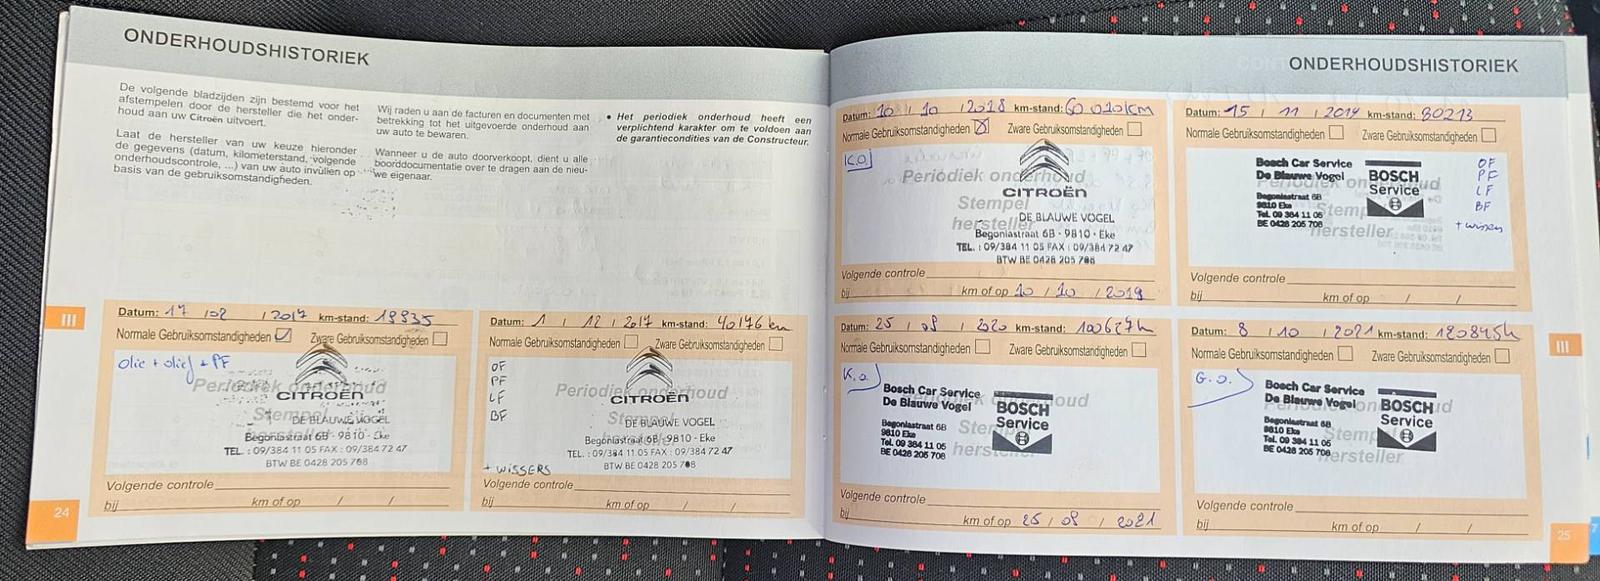 ONDERHOUDSHISTORIEK
De volgende bladzijden zijn bestemd voor het
afstempelen door de hersteller die het onder-
houd aan uw Citroën uitvoert.
Laat de hersteller van uw keuze hieronder
de gegevens (datum, kilometerstand, volgende
onderhoudscontrole, ...) van uw auto invullen op
basis van de gebruiksomstandigheden.
Wij raden u aan de facturen en documenten met
betrekking tot het uitgevoerde onderhoud aan
uw auto te bewaren.
Wanneer u de auto doorverkoopt, dient u alle
boorddocumentatie over te dragen aan de nieu-
we eigenaar.
• Het periodiek onderhoud heeft een
verplichtend karakter om te voldoen aan
de garantiecondities van de Constructeur.
III
Datum: 17 / 02 / 2017 km-stand: 19935
Normale Gebruiksomstandigheden Zware Gebruiksomstandigheden
olie + olief + PF
Periodiek onderhoud
CITROËN
Stempel
DE BLAUWE VOGEL
Begoniastraat 6B - 9810 - Eke
TEL. : 09/384 11 05 FAX : 09/384 72 47
BTW BE 0428 205 768
Volgende controle
bij km of op / /
24
Datum: 1 / 12 / 2017 km-stand: 40176 km
Normale Gebruiksomstandigheden Zware Gebruiksomstandigheden
OF
PF
LF
BF
Periodiek onderhoud
CITROËN
DE BLAUWE VOGEL
Begoniastraat 6B - 9810 - Eke
TEL. : 09/384 11 05 FAX : 09/384 72 47
BTW BE 0428 205 768
+ WISSERS
Volgende controle
bij km of op / /
ONDERHOUDSHISTORIEK
Datum: 10 / 10 / 2018 km-stand: 60 010 km
Normale Gebruiksomstandigheden Zware Gebruiksomstandigheden
K.O.
Periodiek onderhoud
CITROËN
Stempel
DE BLAUWE VOGEL
hersteller
Begoniastraat 6B - 9810 - Eke
TEL. : 09/384 11 05 FAX : 09/384 72 47
BTW BE 0428 205 768
Volgende controle
bij km of op 10 / 10 / 2019
Datum: 15 / 11 / 2019 km-stand: 80213
Normale Gebruiksomstandigheden Zware Gebruiksomstandigheden
Bosch Car Service
De Blauwe Vogel
Begoniastraat 6B
9810 Eke
Tel. 09 384 11 05
BE 0428 205 708
BOSCH
Service
hersteller
OF
PF
LF
BF
+ wissers
Volgende controle
bij km of op / /
Datum: 25 / 08 / 2020 km-stand: 100627k
Normale Gebruiksomstandigheden Zware Gebruiksomstandigheden
K.O.
Bosch Car Service
De Blauwe Vogel
Begoniastraat 6B
9810 Eke
Tel. 09 384 11 05
BE 0428 205 708
BOSCH
Service
Volgende controle
bij km of op 25 / 08 / 2021
Datum: 8 / 10 / 2021 km-stand: 120845k
Normale Gebruiksomstandigheden Zware Gebruiksomstandigheden
G.O.
Bosch Car Service
De Blauwe Vogel
Begoniastraat 6B
9810 Eke
Tel. 09 384 11 05
BE 0428 205 708
BOSCH
Service
hersteller
Volgende controle
bij km of op / /
III
25
7